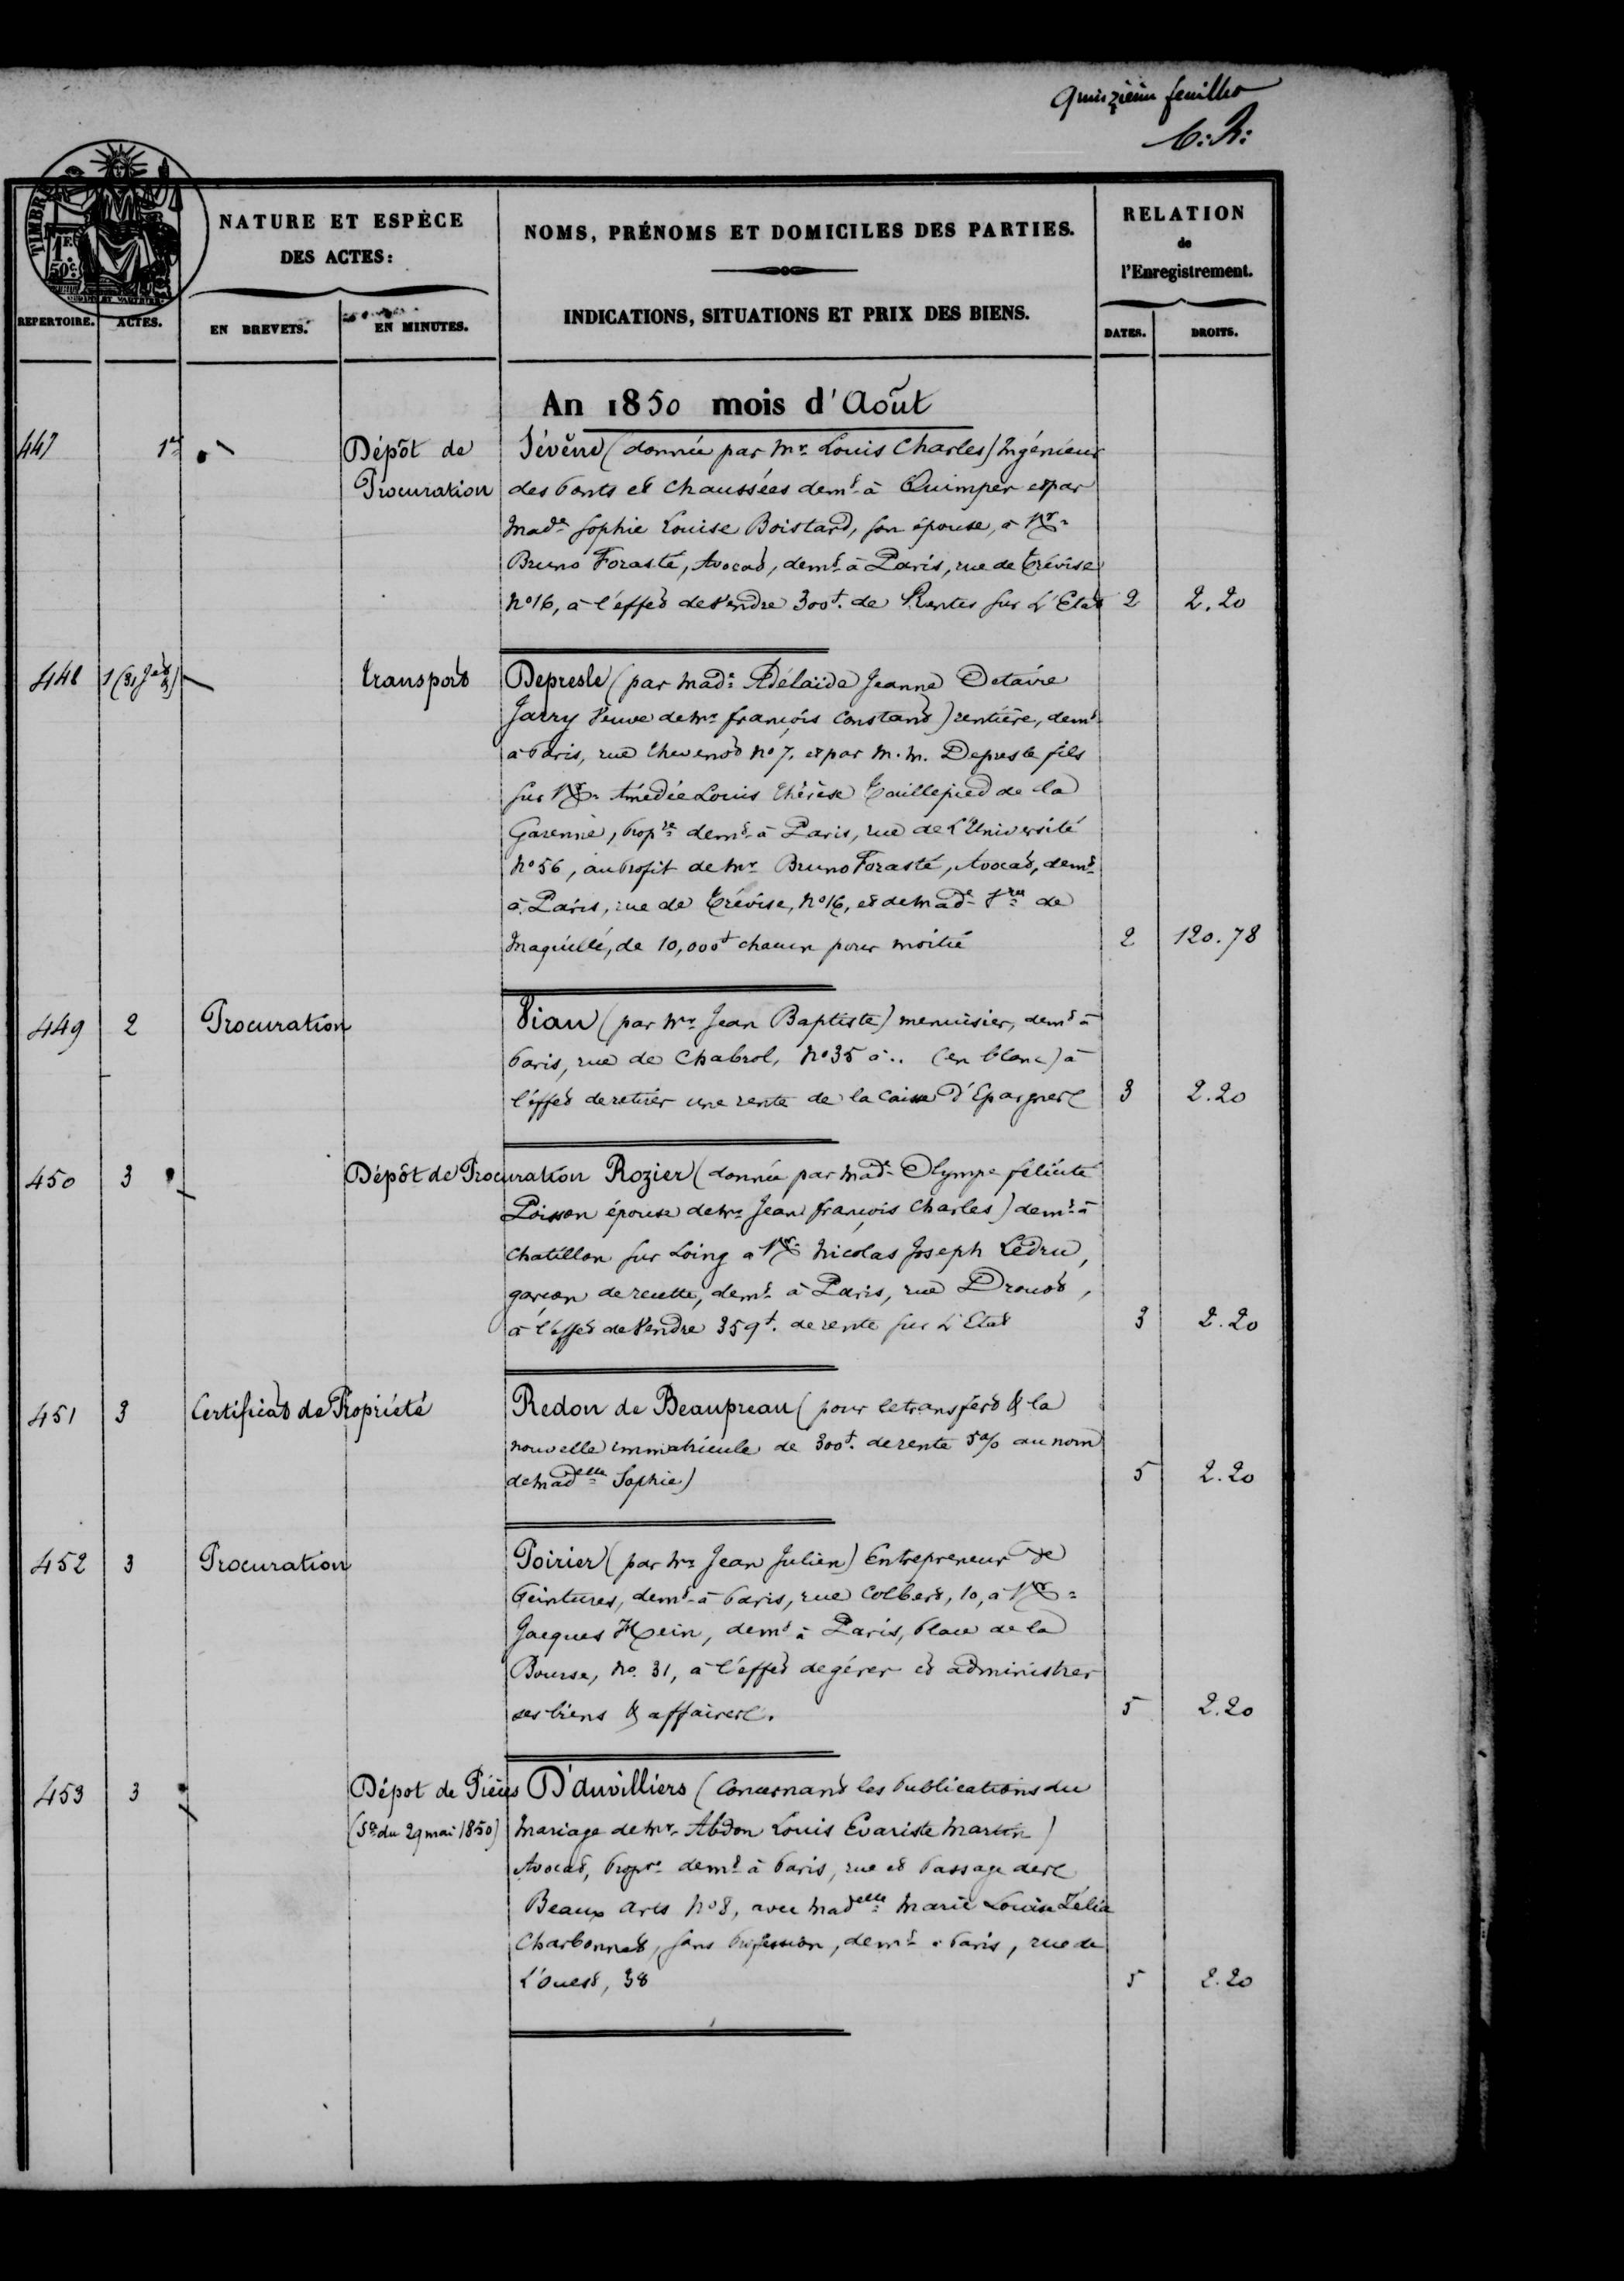 quinzième feuillet
C. R.
TIMBRE
1 F.
50 c.
NATURE ET ESPÈCE
DES ACTES:
NOMS, PRÉNOMS ET DOMICILES DES PARTIES.
INDICATIONS, SITUATIONS ET PRIX DES BIENS.
RELATION
de
l'Enregistrement.
REPERTOIRE. ACTES. EN BREVETS. EN MINUTES. DATES. DROITS.
An 1850 mois d'Août
447 1er Dépôt de Sévène (donnée par Mr. Louis Charles) Ingénieur
Procuration des Ponts et Chaussées demt. à Quimper et par
Made. Sophie Louise Boistard, son épouse, à Mr.
Bruno Forasté, Avocat, demt. à Paris, rue de Trévise
No 16, à l'effet de Vendre 300f. de Rentes sur L'Etat 2 2.20
448 1 (31 Jet) Transport Depresle (par Made. Adélaïde Jeanne Octavie
Jarry Veuve de Mr. françois Constant) rentière, demt.
à Paris, rue Thevenot No 7, et par M. M. Depresle fils
sur Mr. Amédée Louis Thérèse Taillepied de la
Garenne, Propre. demt. à Paris, rue de L'Université
No 56, au Profit de Mr. Bruno Forasté, Avocat, demt.
à Paris, rue de Trévise, No 16, et de Made. de
Maquillé, de 10,000f chacun pour moitié 2 120.78
449 2 Procuration Vian (par Mr. Jean Baptiste) menuisier, demt. à
Paris, rue de Chabrol, No 35 à .. (en blanc) à
l'effet de retirer une rente de la Caisse d'Epargnes 3 2.20
450 3 Dépôt de Procuration Rozier (donnée par Made. Olympe félicité
Poisson épouse de Mr. Jean françois Charles) demt. à
Chatillon sur Loing à Mr. Nicolas Joseph Ledru,
garçon de recette, demt. à Paris, rue Drouot,
à l'effet de Vendre 359f. de rente sur L'Etat 3 2.20
451 3 Certificat de Propriété Redon de Beaupreau (pour le transfert & la
nouvelle immatricule de 300f. de rente 5% au nom
de Madelle. Sophie) 5 2.20
452 3 Procuration Poirier (par Mr. Jean Julien) Entrepreneur de
Peintures, demt. à Paris, rue Colbert, 10, à Mr.
Jacques Hein, demt. à Paris, Place de la
Bourse, No. 31, à l'effet de gérer et administrer
ses biens & affaires. 5 2.20
453 3 Dépot de Pièces D'auvilliers (Concernant les Publications du
(Son du 29 mai 1850) Mariage de Mr. Abdon Louis Evariste Martin)
Avocat, Propre. demt. à Paris, rue et Passage des
Beaux Arts No 8, avec Madelle. Marie Louise Zélia
Charbonnet, sans Profession, demt. à Paris, rue de
L'Ouest, 38 5 2.20